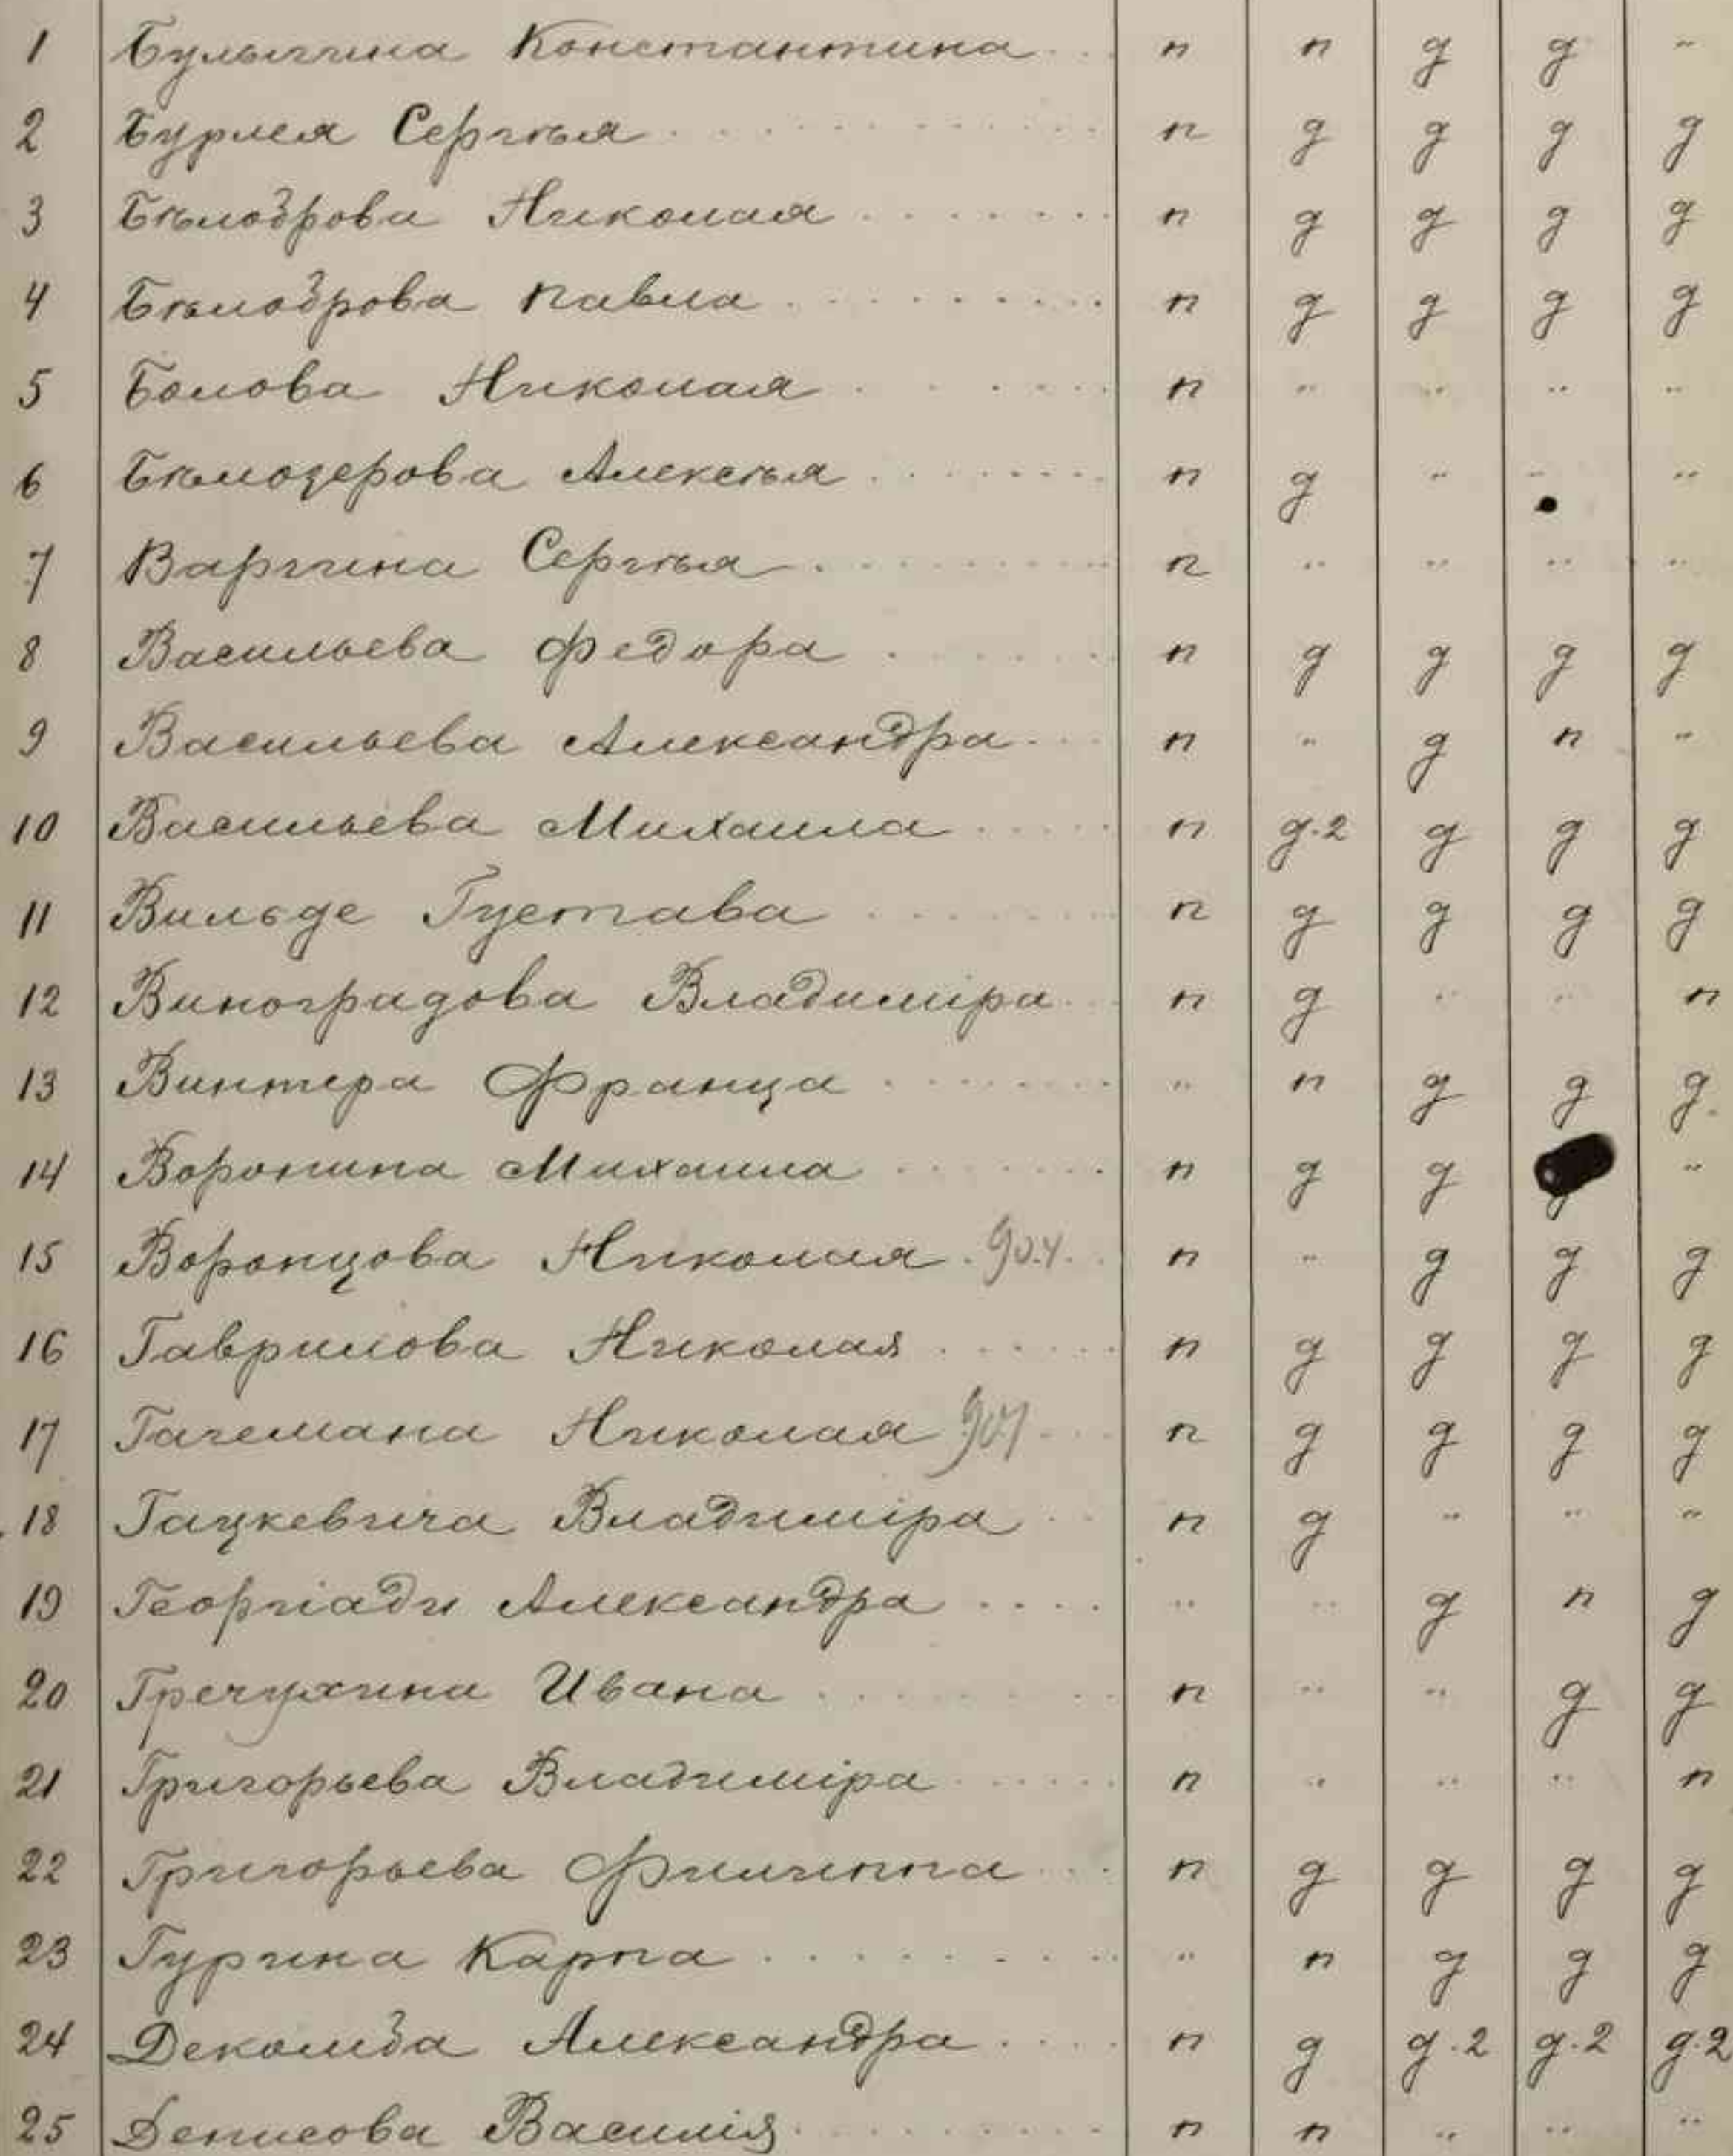 1 Булыгина Константина п п д д "
2 Бурмея Сергѣя п д д д д
3 Бѣлодрова Николая п д д д д
4 Бѣлодрова Павла п д д д д
5 Болова Николая п " " " "
6 Бѣлозерова Алексѣя п д " " "
7 Варгина Сергѣя п " " " "
8 Васильева Федора п д д д д
9 Васильева Александра п " д п "
10 Васильева Михаила п д.2 д д д
11 Вильде Густава п д д д д
12 Виноградова Владиміра п д " " п
13 Винтера Франца " п д д д.
14 Воронина Михаила п д д "
15 Воронцова Николая п " д д д
16 Гаврилова Николая п д д д д
17 Гагемана Николая п д д д д
18 Гацкевича Владиміра п д " " "
19 Георгіади Александра " " д п д
20 Гречухина Ивана п " " д д
21 Григорьева Владиміра п " " " п
22 Григорьева Филиппа п д д д д
23 Гургина Карпа " п д д д
24 Александра п д д.2 д.2 д.2
25 Денисова Василія п п " " "